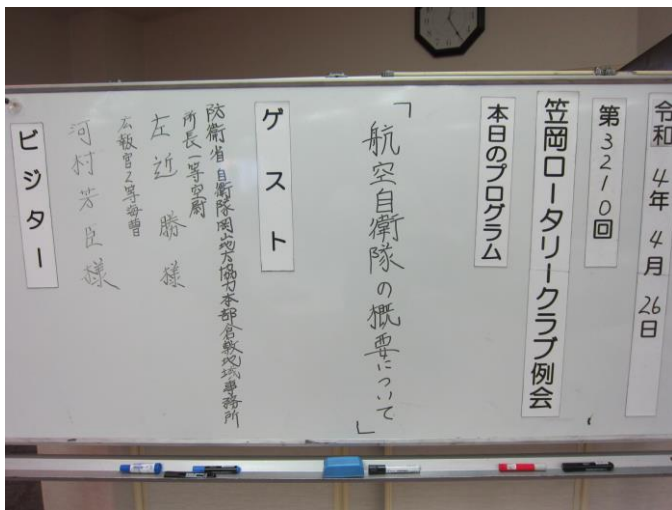 令和4年4月26日
第3210回
笠岡ロータリークラブ例会
本日のプログラム
「航空自衛隊の概要について」
ゲスト
防衛省 自衛隊岡山地方協力本部倉敷地域事務所
所長 一等空尉
左近 勝 様
広報官 2等海曹
河村芳臣様
ビジター